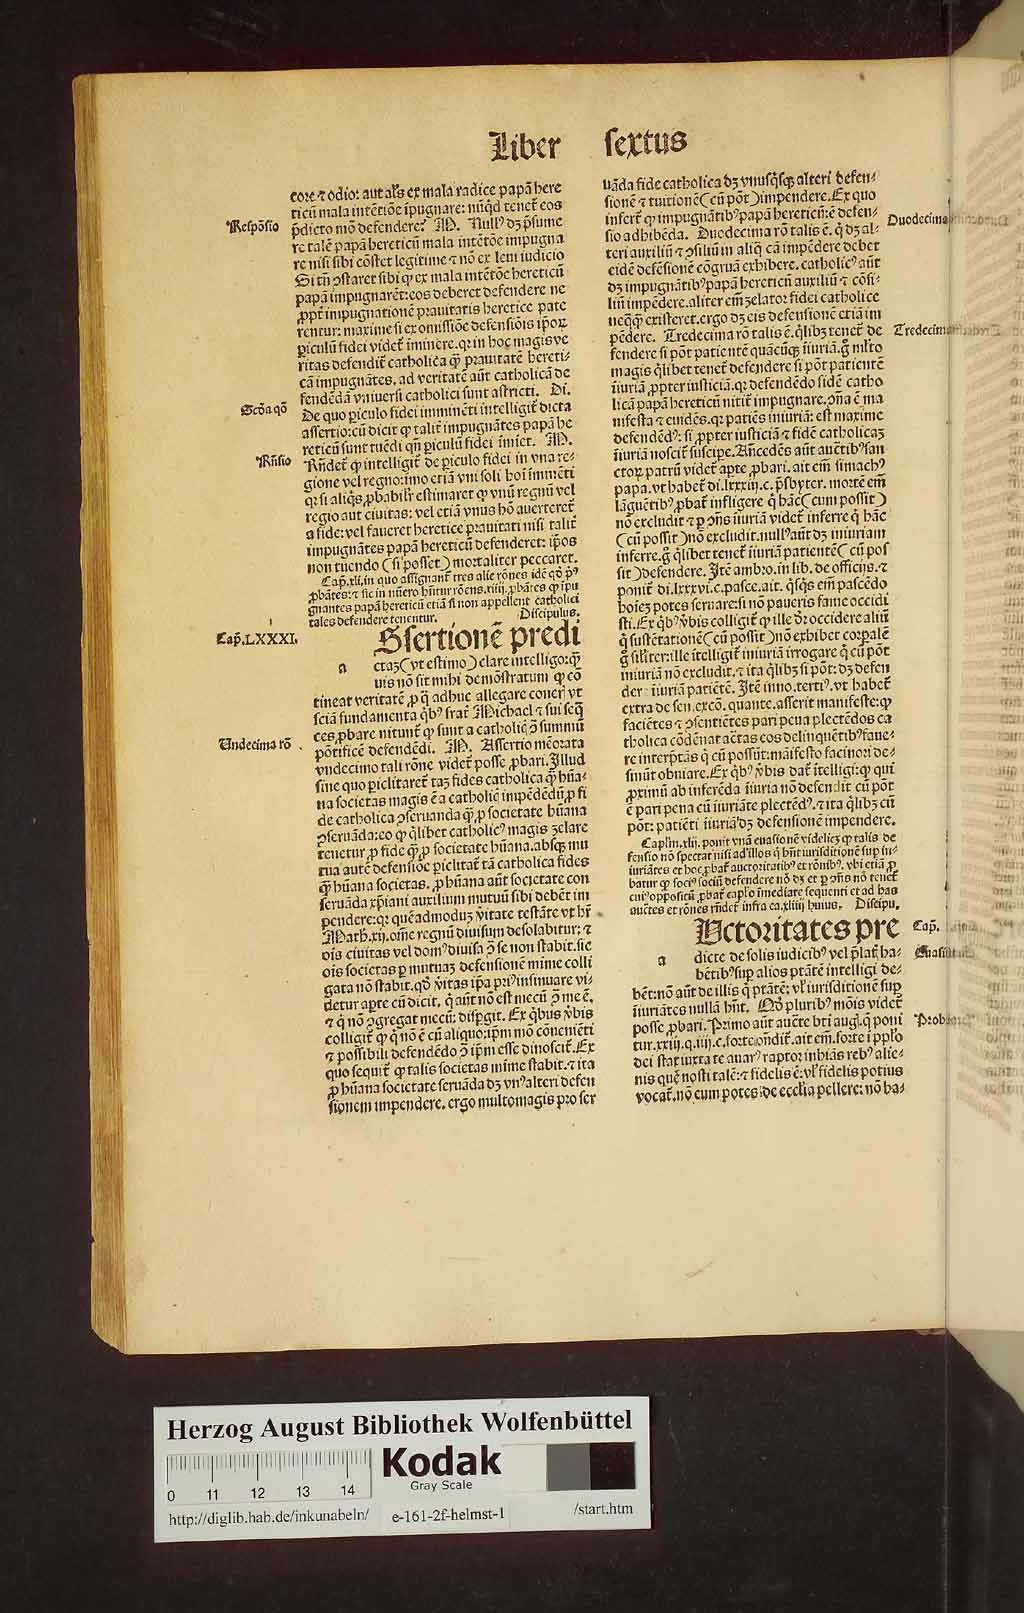 Liber sextus
core ⁊ odio: aut al's ex mala radice papā here
ticū mala intētiōe īpugnare: nūqd tenet̄ eos
p̄dicto mō defendere? M. Null⁹ dꝫ p̄sume
Respōsio
re talē papā hereticū mala intētōe impugna
re nisi sibi cōstet legitime ⁊ nō ex leui iudicio
Si tn̄ ꝯstaret sibi ꝙ ex mala intētōe hereticū
papā impugnarēt: eos deberet defendere ne
ꝓpt̄ impugnationē prauitatis heretice pate
rentur: maxime si ex omissiōe defensiōis ip̄oꝝ
ꝑiculū fidei videt̄ iminere. qꝛ in hoc magis ve
ritas defendit̄ catholica qꝫ prauitatē hereti-
cā impugnātes. ad veritatē aūt catholicā de
fendēdā vniuersi catholici sunt astricti. Di.
Scōa qō
De quo ꝑiculo fidei imminēti intelligit̄ dicta
assertio: cū dicit ꝙ talit̄ impugnātes papā he
reticū sunt tuēdi qn̄ ꝑiculū fidei īmiet. M.
Rn̄sio
Rn̄det̄ ꝙ intelligit̄ de ꝑiculo fidei in vna re-
gione vel regno: imo etiā vni soli hoī immēti
qꝛ si aliqs ꝓbabilr̄ estimaret ꝙ vnū regnū vel
regio aut ciuitas: vel etiā vnus hō auerteret̄
a fide: vel faueret heretice prauitati nisi talit̄
impugnātes papā hereticū defenderet: ip̄os
non tuendo (si posset) mortaliter peccaret.
Cap̄. xli. in quo assignant̄ tres alie rōnes idē qō pⁱ⁹
ꝓbātes: ⁊ sic in nūero hn̄tur rōens. xiiij. ꝓbātes ꝙ īpu
gnantes papā hereticū etiā si non appellent catholici
tales defendere tenentur. Discipulus.
Cap̄. LXXXI.
Ssertionē predi
a
ctaꝫ (vt estimo) clare intelligo: qꝫ
uis nō sit mihi demōstratum ꝙ cō
tineat veritatē ꝓ q̄ adhuc allegare coner̄ vt
sciā fundamenta qb⁹ frat̄ Michael ⁊ sui seq̄
ces ꝓbare nitunt̄ ꝙ sunt a catholicꝭ ꝯ̄ summū
pōtificē defendēdi. M. Assertio mēorata
Vndecima rō
vndecimo tali rōne videt̄ posse ꝓbari. Illud
sine quo ꝑiclitaret̄ taꝫ fides catholica qꝫ hūa-
na societas magis ē a catholicꝭ impēdēdū ꝓ fi
de catholica ꝯseruanda qꝫ ꝓ societate hūana
ꝯseruāda: eo ꝙ qlibet catholic⁹ magis zelare
tenetur ꝓ fide qꝫ ꝓ societate hūana. absqꝫ mu
tua autē defensiōe ꝑiclitat̄ tā catholica fides
qꝫ hūana societas. ꝓ hūana aūt societate con
seruāda xp̄iani auxilium mutuū sibi debēt im
pendere: qꝛ quēadmoduꝫ v̄itate testāte vt hr̄
Math. xij. om̄e regnū diuisum desolabitur: ⁊
oīs ciuitas vel dom⁹ diuisa ꝯ̄ se non stabit. sic
oīs societas ꝑ mutuaꝫ defensionē mīme colli
gata nō stabit. qd̄ v̄itas ip̄a pri⁹ insinuare vi-
detur aꝑte cū dicit. q̄ aūt nō est mecū ꝯ̄ me ē.
⁊ q̄ nō ꝯgregat mecū: dispgit. Ex qbus v̄bis
colligit̄ ꝙ q̄ nō ē cū aliquo: ip̄m mō cōueniēti
⁊ possibili defendēdo ꝯ̄ ip̄m esse dinoscit̄. Ex
quo sequit̄ ꝙ talis societas mīme stabit. ⁊ ita
ꝓ hūana societate seruāda dꝫ vn⁹ alteri defen
sionem impendere. ergo multomagis pro ser
uāda fide catholica dꝫ vnusqsqꝫ alteri defen-
sionē ⁊ tuitionē (cū pōt) impendere. Ex quo
infert̄ ꝙ impugnātib⁹ papā hereticū: ē defen-
sio adhibēda. Duodecima rō talis ē. q̄ dꝫ al-
Duodecima
teri auxiliū ⁊ ꝯsiliū in aliq̄ cā impēdere debet
eidē defēsionē cōgruā exhibere. catholic⁹ aūt
dꝫ impugnātib⁹ papā hereticū auxiliū ⁊ cōsi-
liū impēdere. aliter em̄ zelator fidei catholice
neqꝙ existeret. ergo dꝫ eis defensionē etiā im
pēdere. Tredecima rō talis ē. qlibꝫ tenet̄ de
Tredecim
fendere si pōt patientē quācūqꝫ iīuriā. g̊ ml̄to
magis qlibet tenet̄ defendere si pōt patientē
iīuriā ꝓpter iusticiā. qꝛ defendēdo fidē catho
licā papā hereticū nitit̄ impugnare. ꝯn̄a ē ma
nifesta ⁊ euidēs. qꝛ patiēs iniuriā: est maxime
defendēd⁹: si ꝓpter iusticiā ⁊ fidē catholicaꝫ
iīuriā noscit̄ suscipe. Añcedēs aūt auctīb⁹ san
ctoꝝ patrū videt̄ aꝑte ꝓbari. ait em̄ simach⁹
papa. vt habet̄ di. lxxxiij. c. p̄sbyter. mortē em̄
lāguētib⁹ ꝓbat̄ infligere q̄ hāc (cum possit)
nō excludit ⁊ ꝑ ꝯn̄s iīuriā videt̄ inferre q̄ hāc
(cū possit) nō excludit. null⁹ aūt dꝫ iniuriam
inferre. g̊ qlibet tenet̄ iīuriā patientē (cū pos
sit) defendere. Itē ambro. in lib. de officijs. ⁊
ponit̄ di. lxxxvi. c. pasce. ait. qsqs em̄ pascēdo
hoīeꝫ potes seruare: si nō paueris fame occidi
sti. Ex qb⁹ v̄bis colligit̄ ꝙ ille dr̄ occidere aliū
q̄ sustētationē (cū possit) nō exhibet corꝑalē
g̊ sil̄iter: ille ītelligit̄ iniuriā irrogare q̄ cū pōt
iniuriā nō excludit. ⁊ ita qlibꝫ si pōt: dꝫ defen
dere iīuriā patiētē. Itē inno. terti⁹. vt habet̄
extra de sen. excō. quante. asserit manifeste: ꝙ
faciētes ⁊ ꝯsentiētes pari pena plectēdos ca
tholica cōdēnat actas eos delinquētib⁹ faue-
re interp̄tās q̄ cū possūt: maīfesto facinori de-
sinūt obuiare. Ex qb⁹ v̄bis dat̄ ītelligi: ꝙ qui
ꝓximū ab inferēda iīuria nō defendit cū pōt
ē pari pena cū iīuriāte plectēd⁹. ⁊ ita qlibꝫ cū
pōt: patiēti iīuriā dꝫ defensionē impendere.
Capl̄m. xlij. ponit vnā euasionē videlicꝫ ꝙ talis de
fensio nō spectat nisi ad illos q̄ hn̄t iurisditionē suꝑ in-
iuriātes et hoc ꝓbat̄ auctoritatib⁹ et rōnib⁹. vbi etiā ꝓ
batur ꝙ soci⁹ sociū defendere nō dꝫ et ꝑ ꝯn̄s nō tenet̄
cui⁹ oppositū ꝓbat̄ capl̄o īmediate sequenti et ad has
auc̄tes et rōnes rn̄det̄ infra ca. xliiij huius. Discipu.
Vctoritates pre
Cap̄.
a
dicte de solis iudicib⁹ vel p̄lat̄ ha-
Euasi
bētib⁹ suꝑ alios ptātē intelligi de-
bēt: nō aūt de illis q̄ ptātē: vl̓ iurisditionē suꝑ
iīuriātes nullā hn̄t. Qd̄ plurib⁹ mōis videt̄
posse ꝓbari. Primo aūt auc̄te bt̄i augꝰ. q̄ poni
Prob
tur. xxiij. q. iiij. c. forte. ondit̄. ait em̄. forte ī ppl̄o
dei stat iuxta te auar⁹ raptor inhiās reb⁹ alie-
nis quē nosti talē: ⁊ fidelis ē: vl̓ fidelis potius
vocat̄. nō eum potes de ecclīa pellere: nō ha-
Herzog August Bibliothek Wolfenbüttel
0 11 12 13 14
Kodak
Gray Scale
http://diglib.hab.de/inkunabeln/ e-161-2f-helmst-1 /start.htm